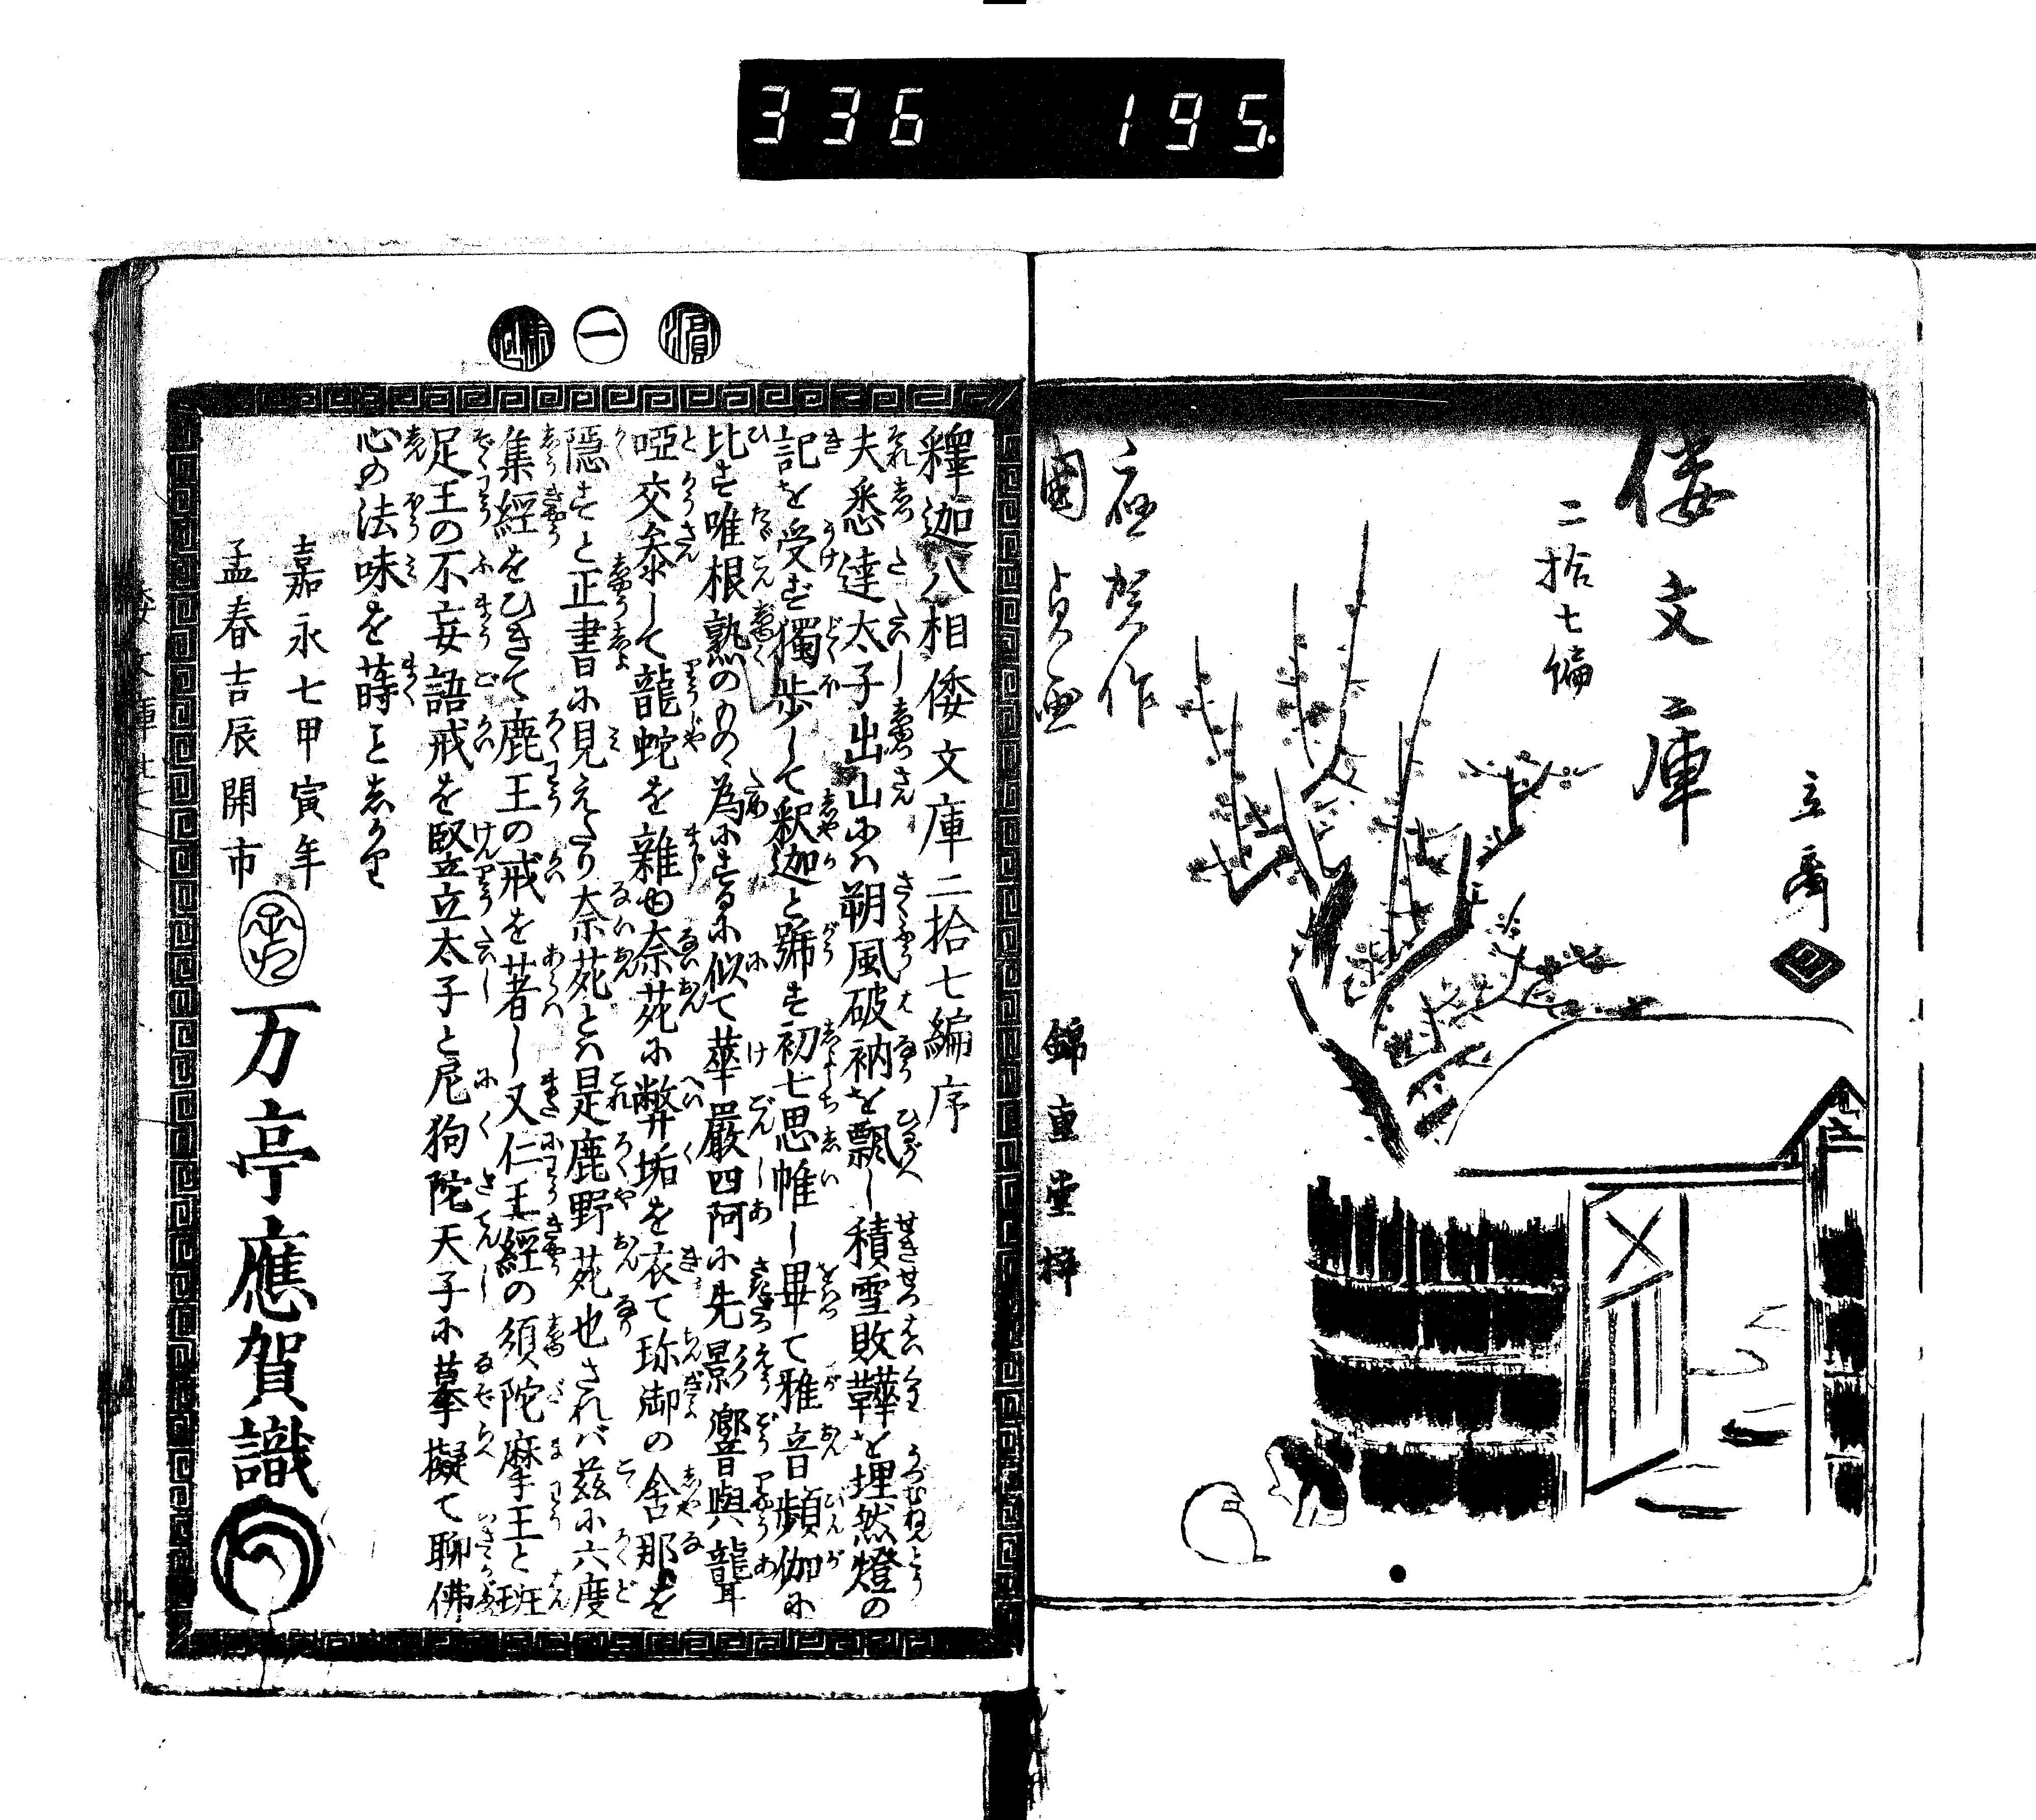 336 195
倭文庫
二拾七編
應賀作
國貞画
立斎
錦重堂梓
一
釋迦八相倭文庫二拾七編序
夫悉達太子出山にハ朔風破衲を飄し積雪敗鞾を埋然燈の
記を受ず獨歩して釈迦と號す初七思惟し畢て雅音頻伽に
比す唯根熟のものゝ為にするに似て華嚴四阿に先影響與聾
啞交叅して龍蛇を雜ゆ奈苑に弊垢を衣て珎御の舎那を
隠すと正書に見えたり奈苑とハ是鹿野苑也されバ茲に六度
集經をひきて鹿王の戒を著し又仁王經の須陀摩王と班
足王の不妄語戒を堅立太子と尼狗陀天子に摹擬て聊佛
心の法味を蒔ことしかり
嘉永七甲寅年
孟春吉辰開市
万亭應賀識